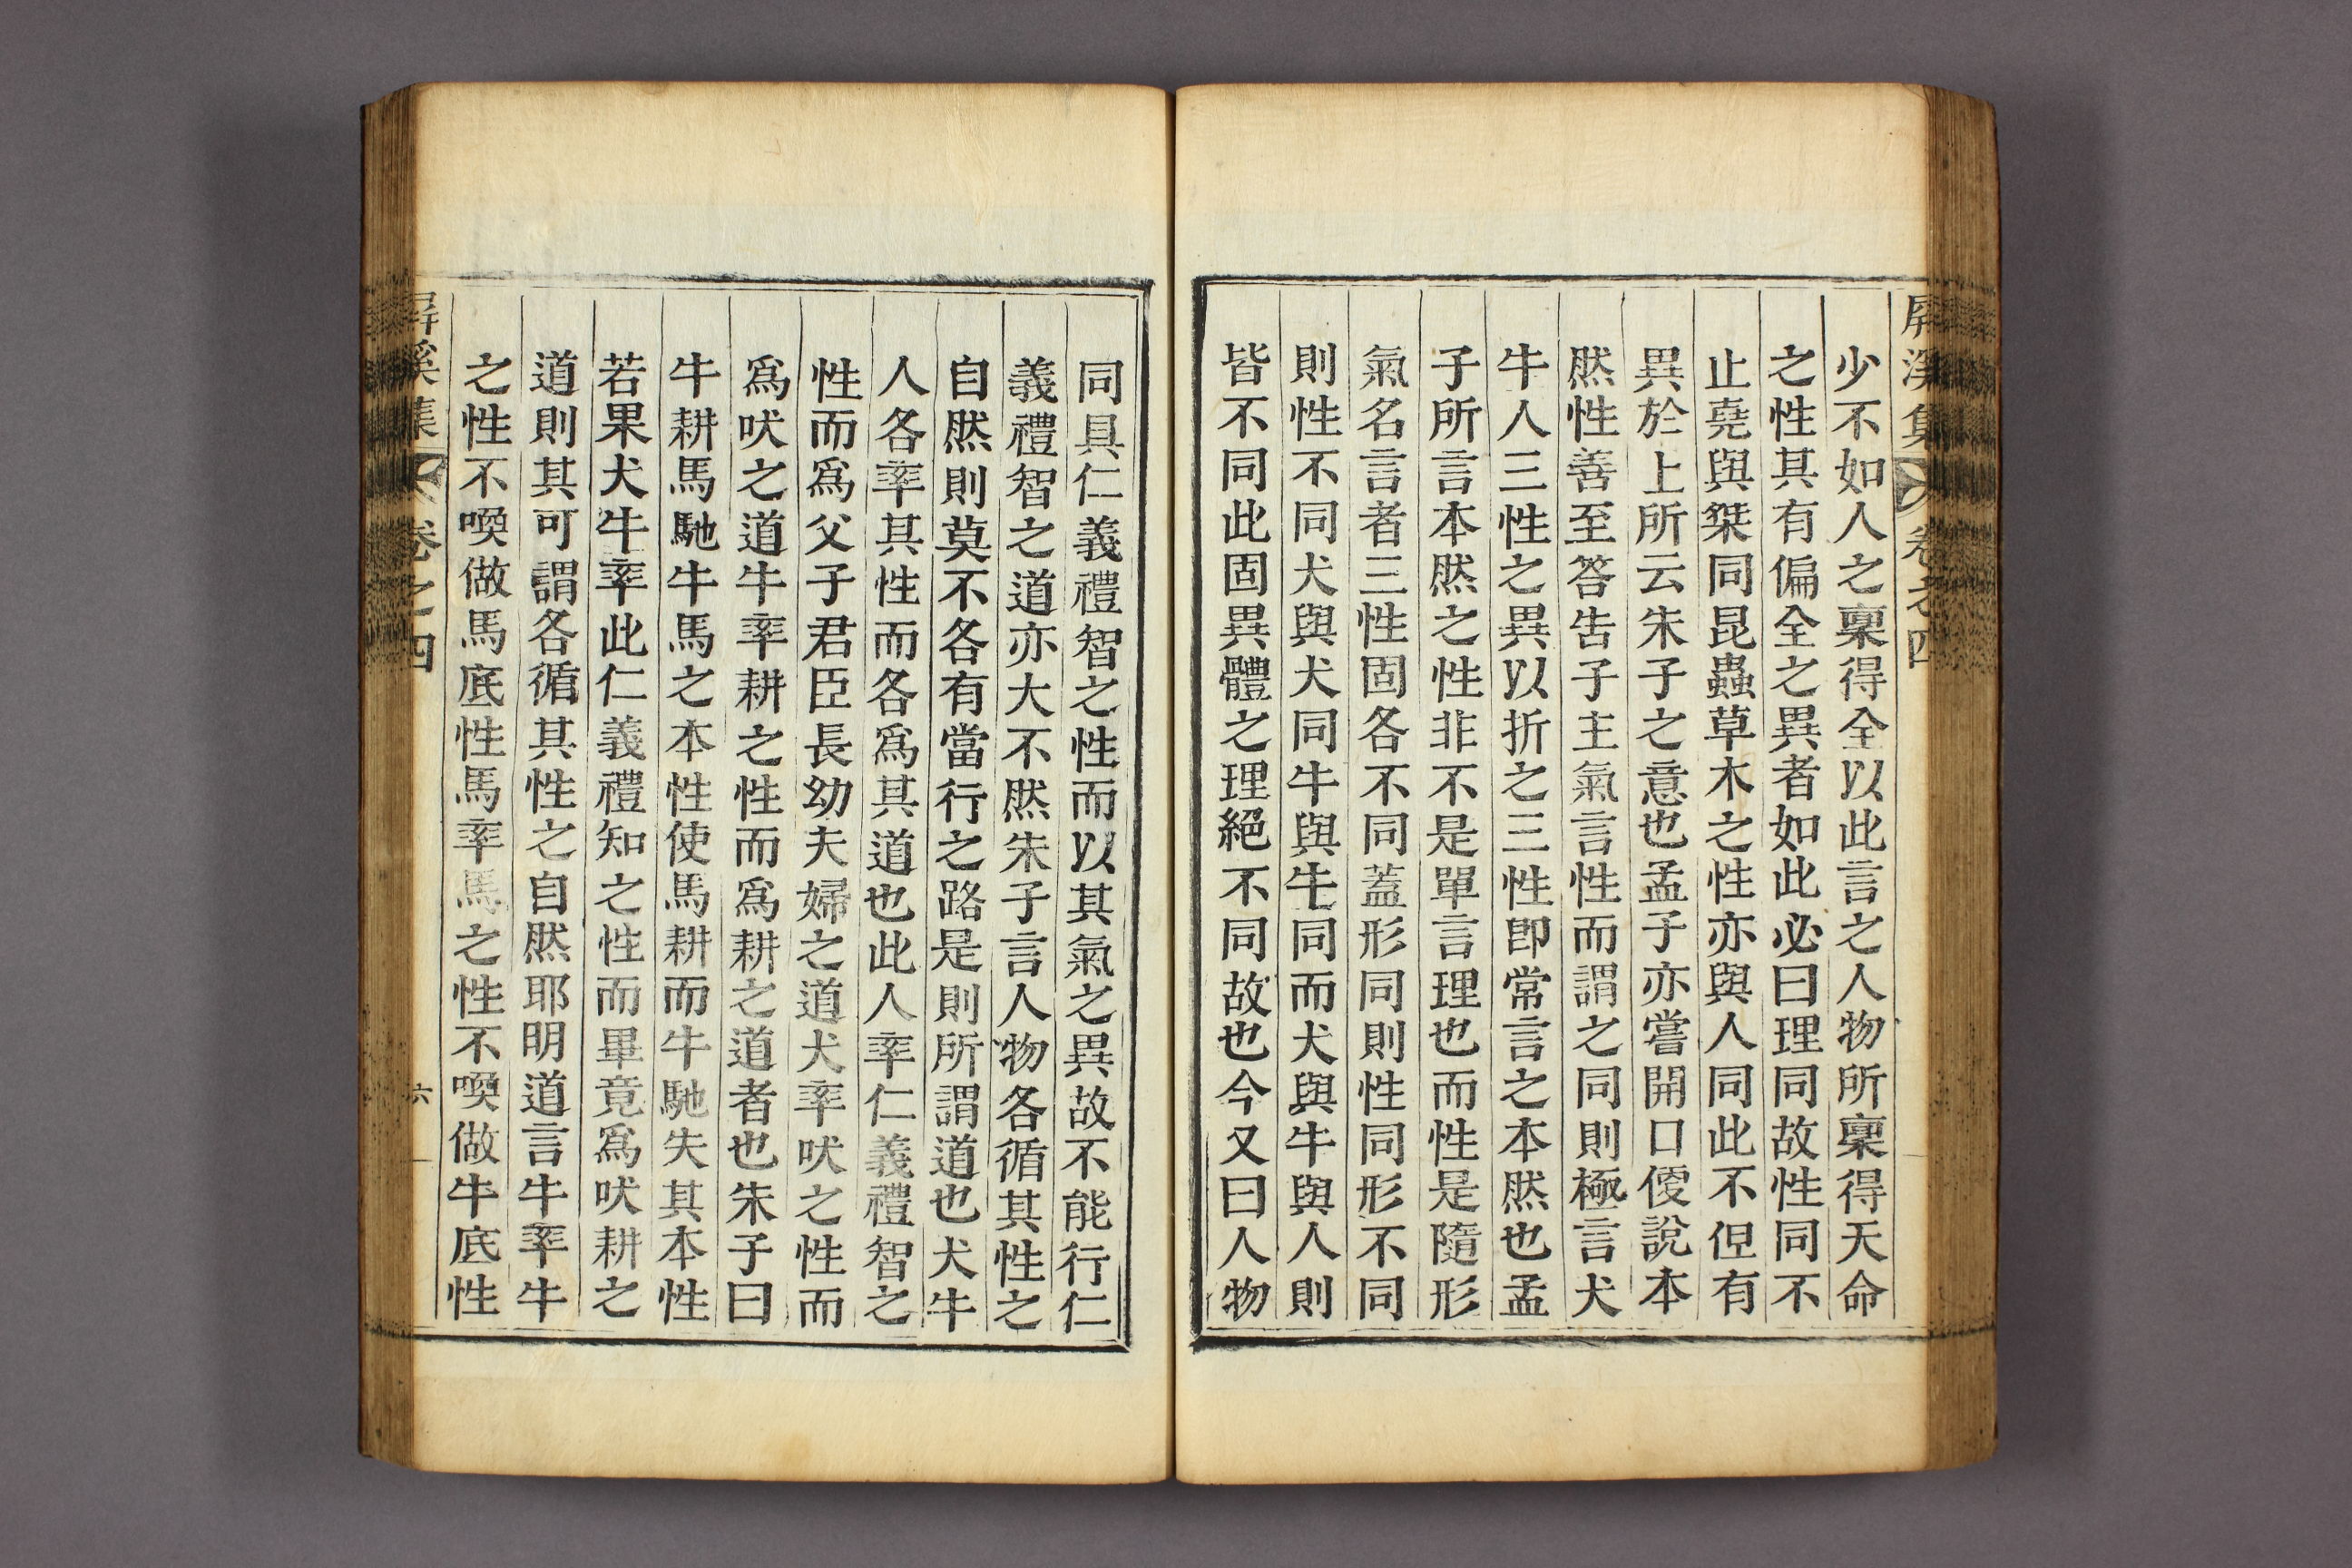 屛溪集 卷之四
少不如人之稟得全以此言之人物所稟得天命
之性其有偏全之異者如此必曰理同故性同不
止堯與桀同昆蟲草木之性亦與人同此不但有
異於上所云朱子之意也孟子亦嘗開口便說本
然性善至答告子主氣言性而謂之同則極言犬
牛人三性之異以折之三性卽常言之本然也孟
子所言本然之性非不是單言理也而性是隨形
氣名言者三性固各不同蓋形同則性同形不同
則性不同犬與犬同牛與牛同而犬與牛與人則
皆不同此固異體之理絕不同故也今又曰人物
同具仁義禮智之性而以其氣之異故不能行仁
義禮智之道亦大不然朱子言人物各循其性之
自然則莫不各有當行之路是則所謂道也犬牛
人各率其性而各爲其道也此人率仁義禮智之
性而爲父子君臣長幼夫婦之道犬率吠之性而
爲吠之道牛率耕之性而爲耕之道者也朱子曰
牛耕馬馳牛馬之本性使馬耕而牛馳失其本性
若果犬牛率此仁義禮知之性而畢竟爲吠耕之
道則其可謂各循其性之自然耶明道言牛率牛
之性不喚做馬底性馬率馬之性不喚做牛底性
屛溪集 卷之四 六